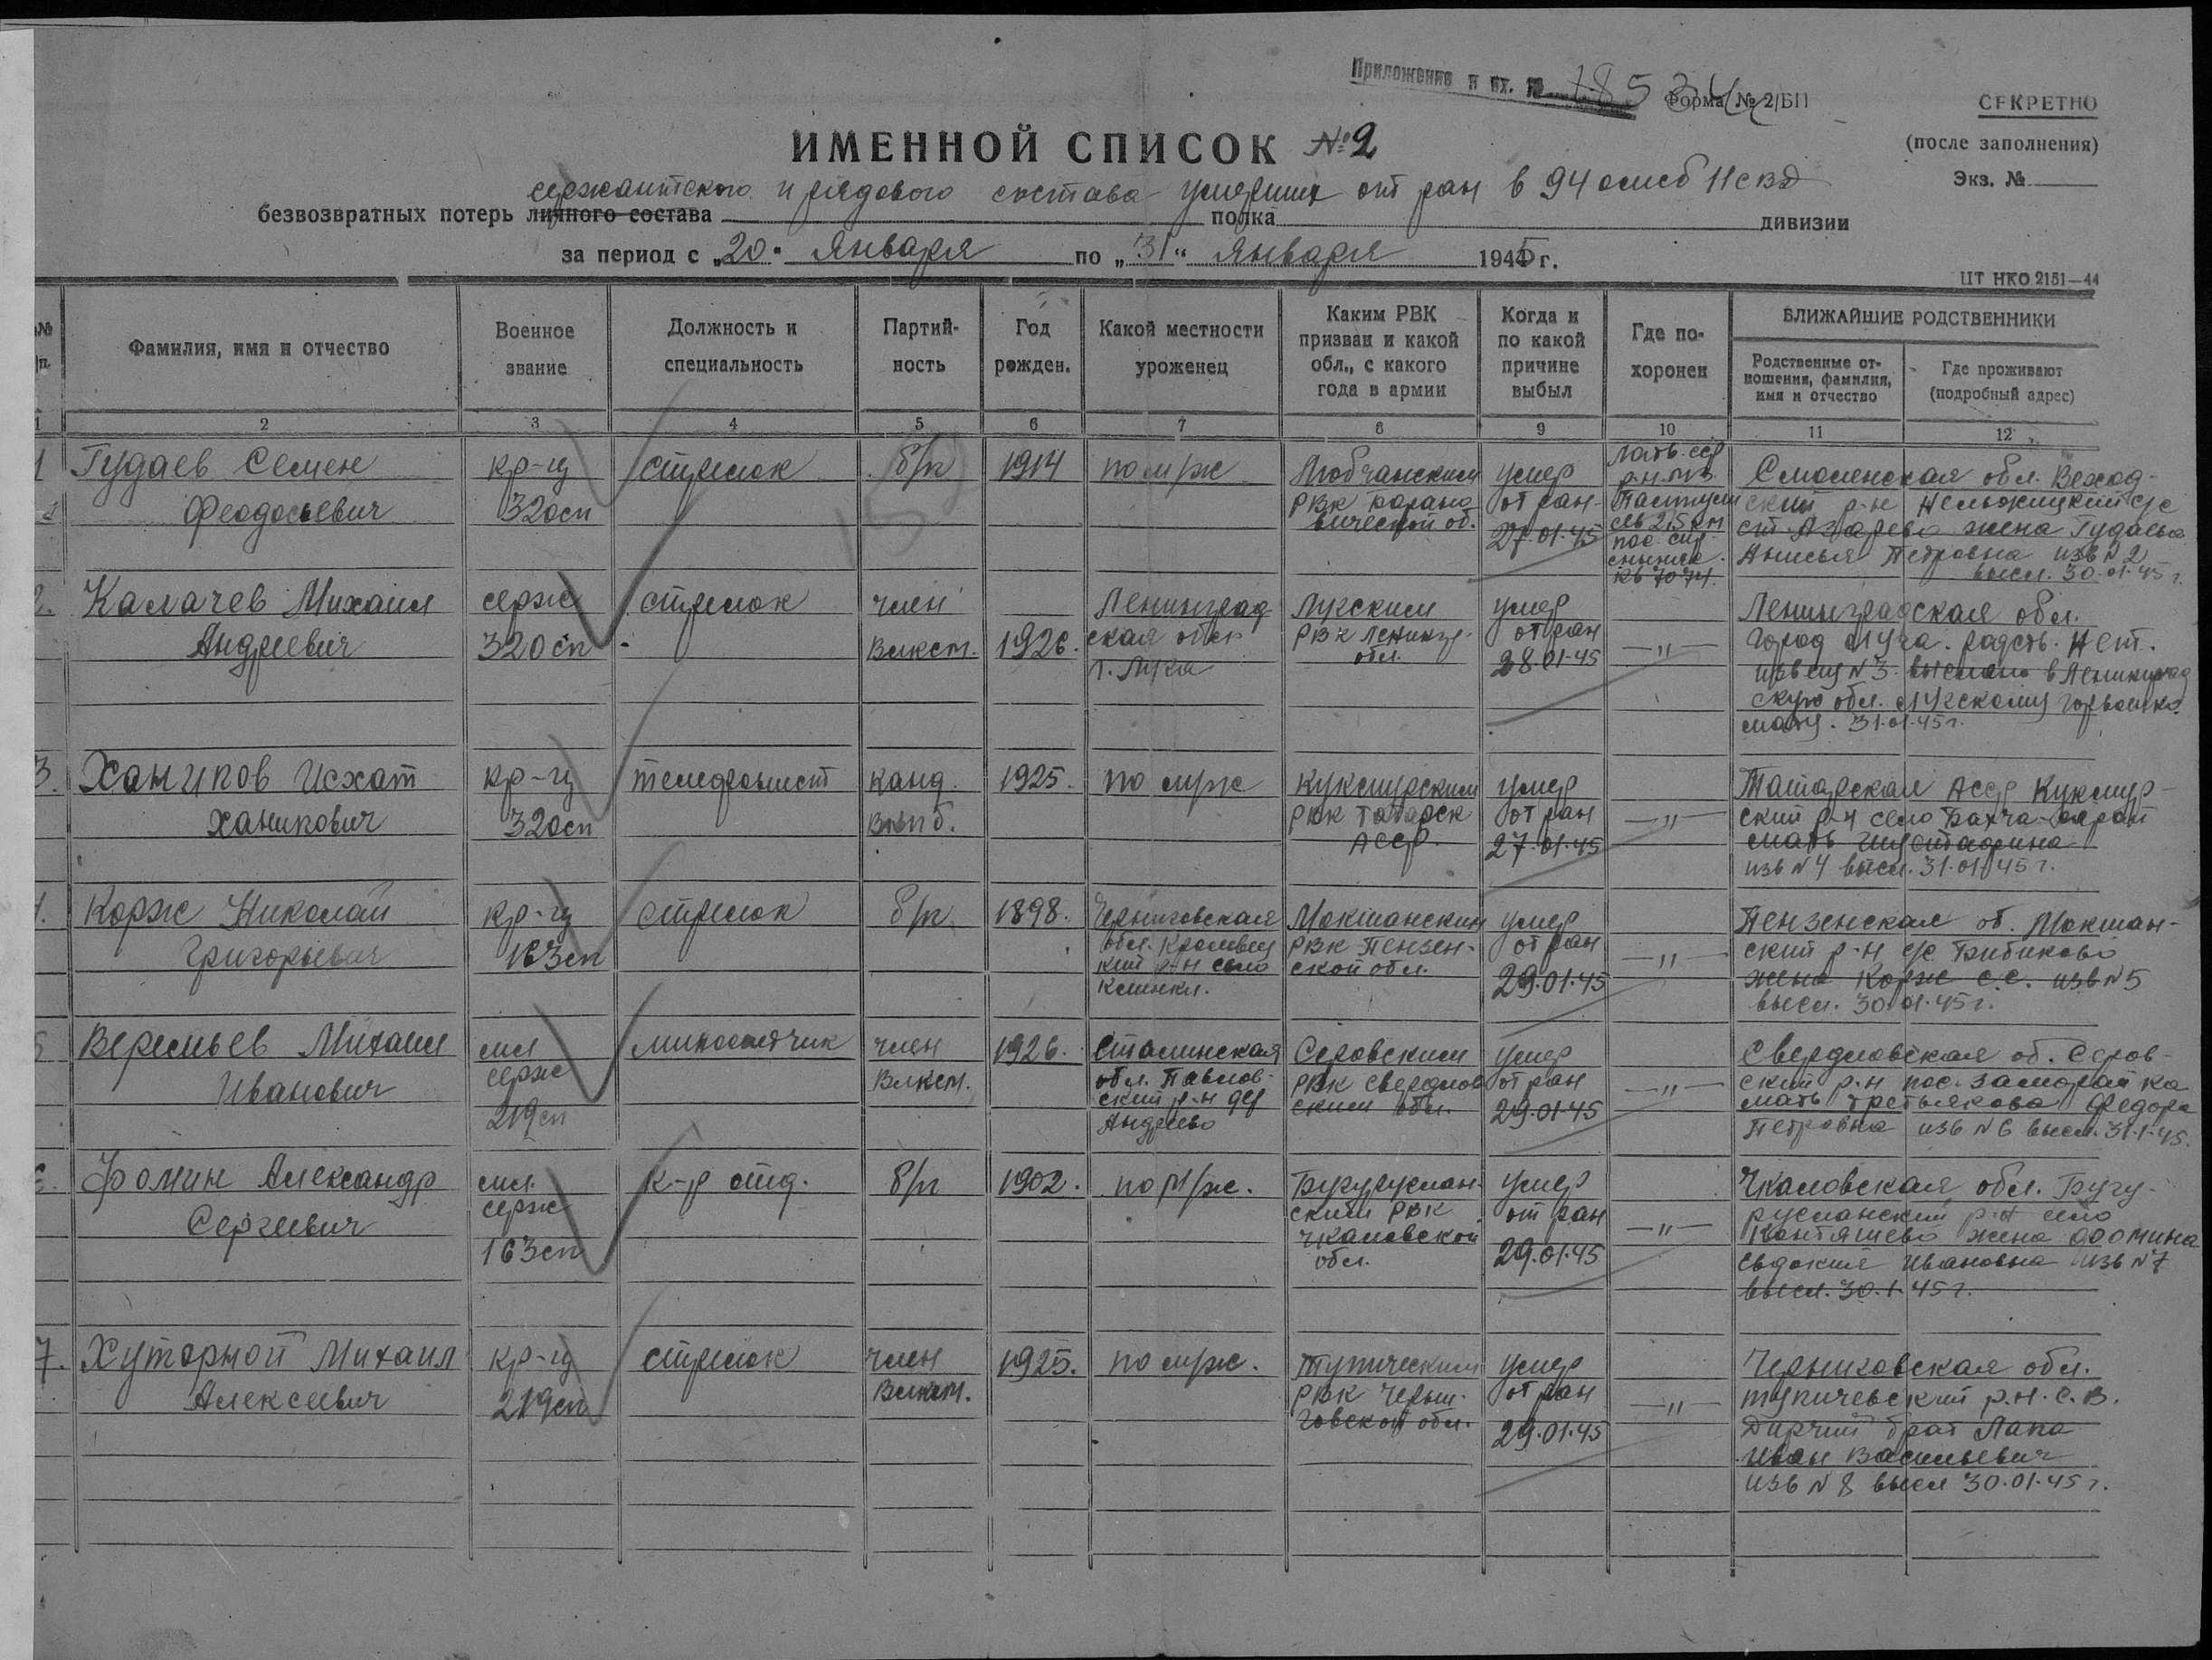 Приложение к вх. №
Форма № 2/БП
СЕКРЕТНО
(после заполнения)
Экз. №
ИМЕННОЙ СПИСОК №2
сержантского и рядового состава умерших от ран в 94 омсб 11 свд
безвозвратных потерь личного состава полка дивизии
за период с „20“ Января по „31“ Января 1945 г.
ЦТ НКО 2151—44
№ п. Фамилия, имя и отчество
Военное звание
Должность и специальность
Партий-ность
Год рожден.
Какой местности уроженец
Каким РВК призван и какой обл., с какого года в армии
Когда и по какой причине выбыл
Где по-хоронен
БЛИЖАЙШИЕ РОДСТВЕННИКИ
Родственные от-ношения, фамилия, имя и отчество
Где проживают (подробный адрес)
1 2 3 4 5 6 7 8 9 10 11 12
1 Гудаев Семен кр-ц стрелок б/п 1914 по м/ж Любчанским умер Латв. сср Смоленская обл.
Феодосьевич 320сп РВК Барано от ран ский р-н с/с
вической об. 27.01.45 2,5 км ст. жена Гудаева
Анисья Петровна изв N 2
высл. 30.01.45 г.
2. Калачев Михаил серж стрелок член Ленинград Лужским умер Ленинградская обл.
Андреевич 320сп Влксм. 1926. ская обл РВК Ленингр. от ран —"— город Луга. родств. нет.
г. Луга обл. 28.01.45 N 3 выслано в Ленинград
скую обл. Лужскому горвоенко
мату. 31.01.45 г.
3. Ханипов Исхат кр-ц телефонист канд. 1925. по м/ж Кукморским умер Татарская АССР Кукмор-
Ханипович 320сп вкпб. РВК Татарск от ран —"— ский р-н село
АССР. 27.01.45 мать
изв N 4 высл. 31.01.45 г.
4. Корж Николай кр-ц стрелок б/п 1898. Черниговская Мокшанским умер Пензенская об. Мокшан-
Григорьевич 163сп обл. Кролевец РВК Пензен- от ран —"— ский р-н с/с Бибиково
кий р-н село ской обл. 29.01.45 жена Корж С.С. изв N 5
высл. 30.01.45 г.
5 Веремьев Михаил мл минометчик член 1926. Сталинская Серовским умер Свердловская об. Серов-
Иванович серж Влксм. обл. Павлов- РВК Свердлов от ран —"— ский р-н пос.
219сп ский р-н дер ским обл. 29.01.45 мать Третьякова Федора
Андреево Петровна изв N 6 высл. 31.1.45.
6. Фомин Александр мл. к-р отд. б/п 1902. по м/ж. Бугуруслан- умер Чкаловская обл. Бугу-
Сергеевич серж ским РВК от ран —"— русланский р-н село
163сп Чкаловской 29.01.45 жена Фомина
обл. Евдокия Ивановна изв N 7
высл. 30.1.45 г.
7. Хуторной Михаил кр-ц стрелок член 1925. по м/ж. Тупическим умер Черниговская обл.
Алексеевич 219сп Влксм. РВК Черни- от ран —"— Тупичевский р.н. С.В.
говской обл. 29.01.45 брат Лапа
Иван Васильевич
изв N 8 высл 30.01.45 г.